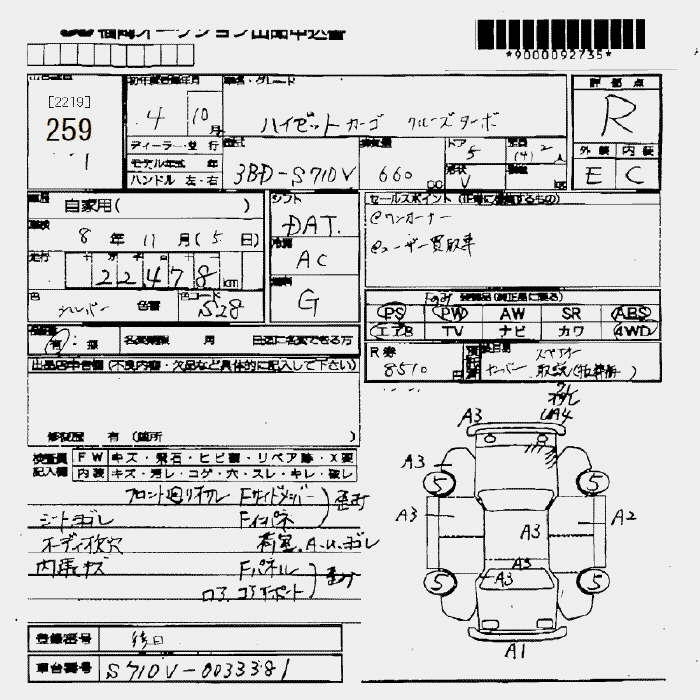 福岡オークション出品申込書
*9000092735*
[2219]
259
初年度登録年月
4 10月
車名・グレード
ハイゼットカーゴ クルーズターボ
評価点
R
ディーラー・並行
モデル年式 年
ハンドル 左・右
型式
3BD-S710V
排気量
660 cc
ドア
5
形状
V
定員
(4) 2 人
外装 内装
E C
自家用( )
車検
8年11月(5日)
走行
22478km
色
シルバー
色替
色コード
S28
シフト
DAT
冷房
AC
燃料
G
セールスポイント(正確に記載するもの)
@ワンオーナー
@ユーザー買取車
装備品(純正品に限る)
PS PW AW SR ABS
エアB TV ナビ カワ 4WD
有:無
名変期限 月 日迄に名変できる方
R券
8510円
出品店申告欄(不良内容・欠品など具体的に記入して下さい)
修復歴 有(箇所 )
検査員
記入欄
FW キズ・飛石・ヒビ割・リペア跡・X要
内装 キズ・汚レ・コゲ・穴・スレ・キレ・破レ
シートヨゴレ
オーディオ枠穴
内張キズ
Fサイドメンバー
Fインパネ
荷室、A.u.ヨゴレ
Fパネル
コアサポート
A3
UA4
A3
5 5
A3 A3 A2
A3
A3
5 5
A1
登録番号 後日
車台番号 S710V-0033381